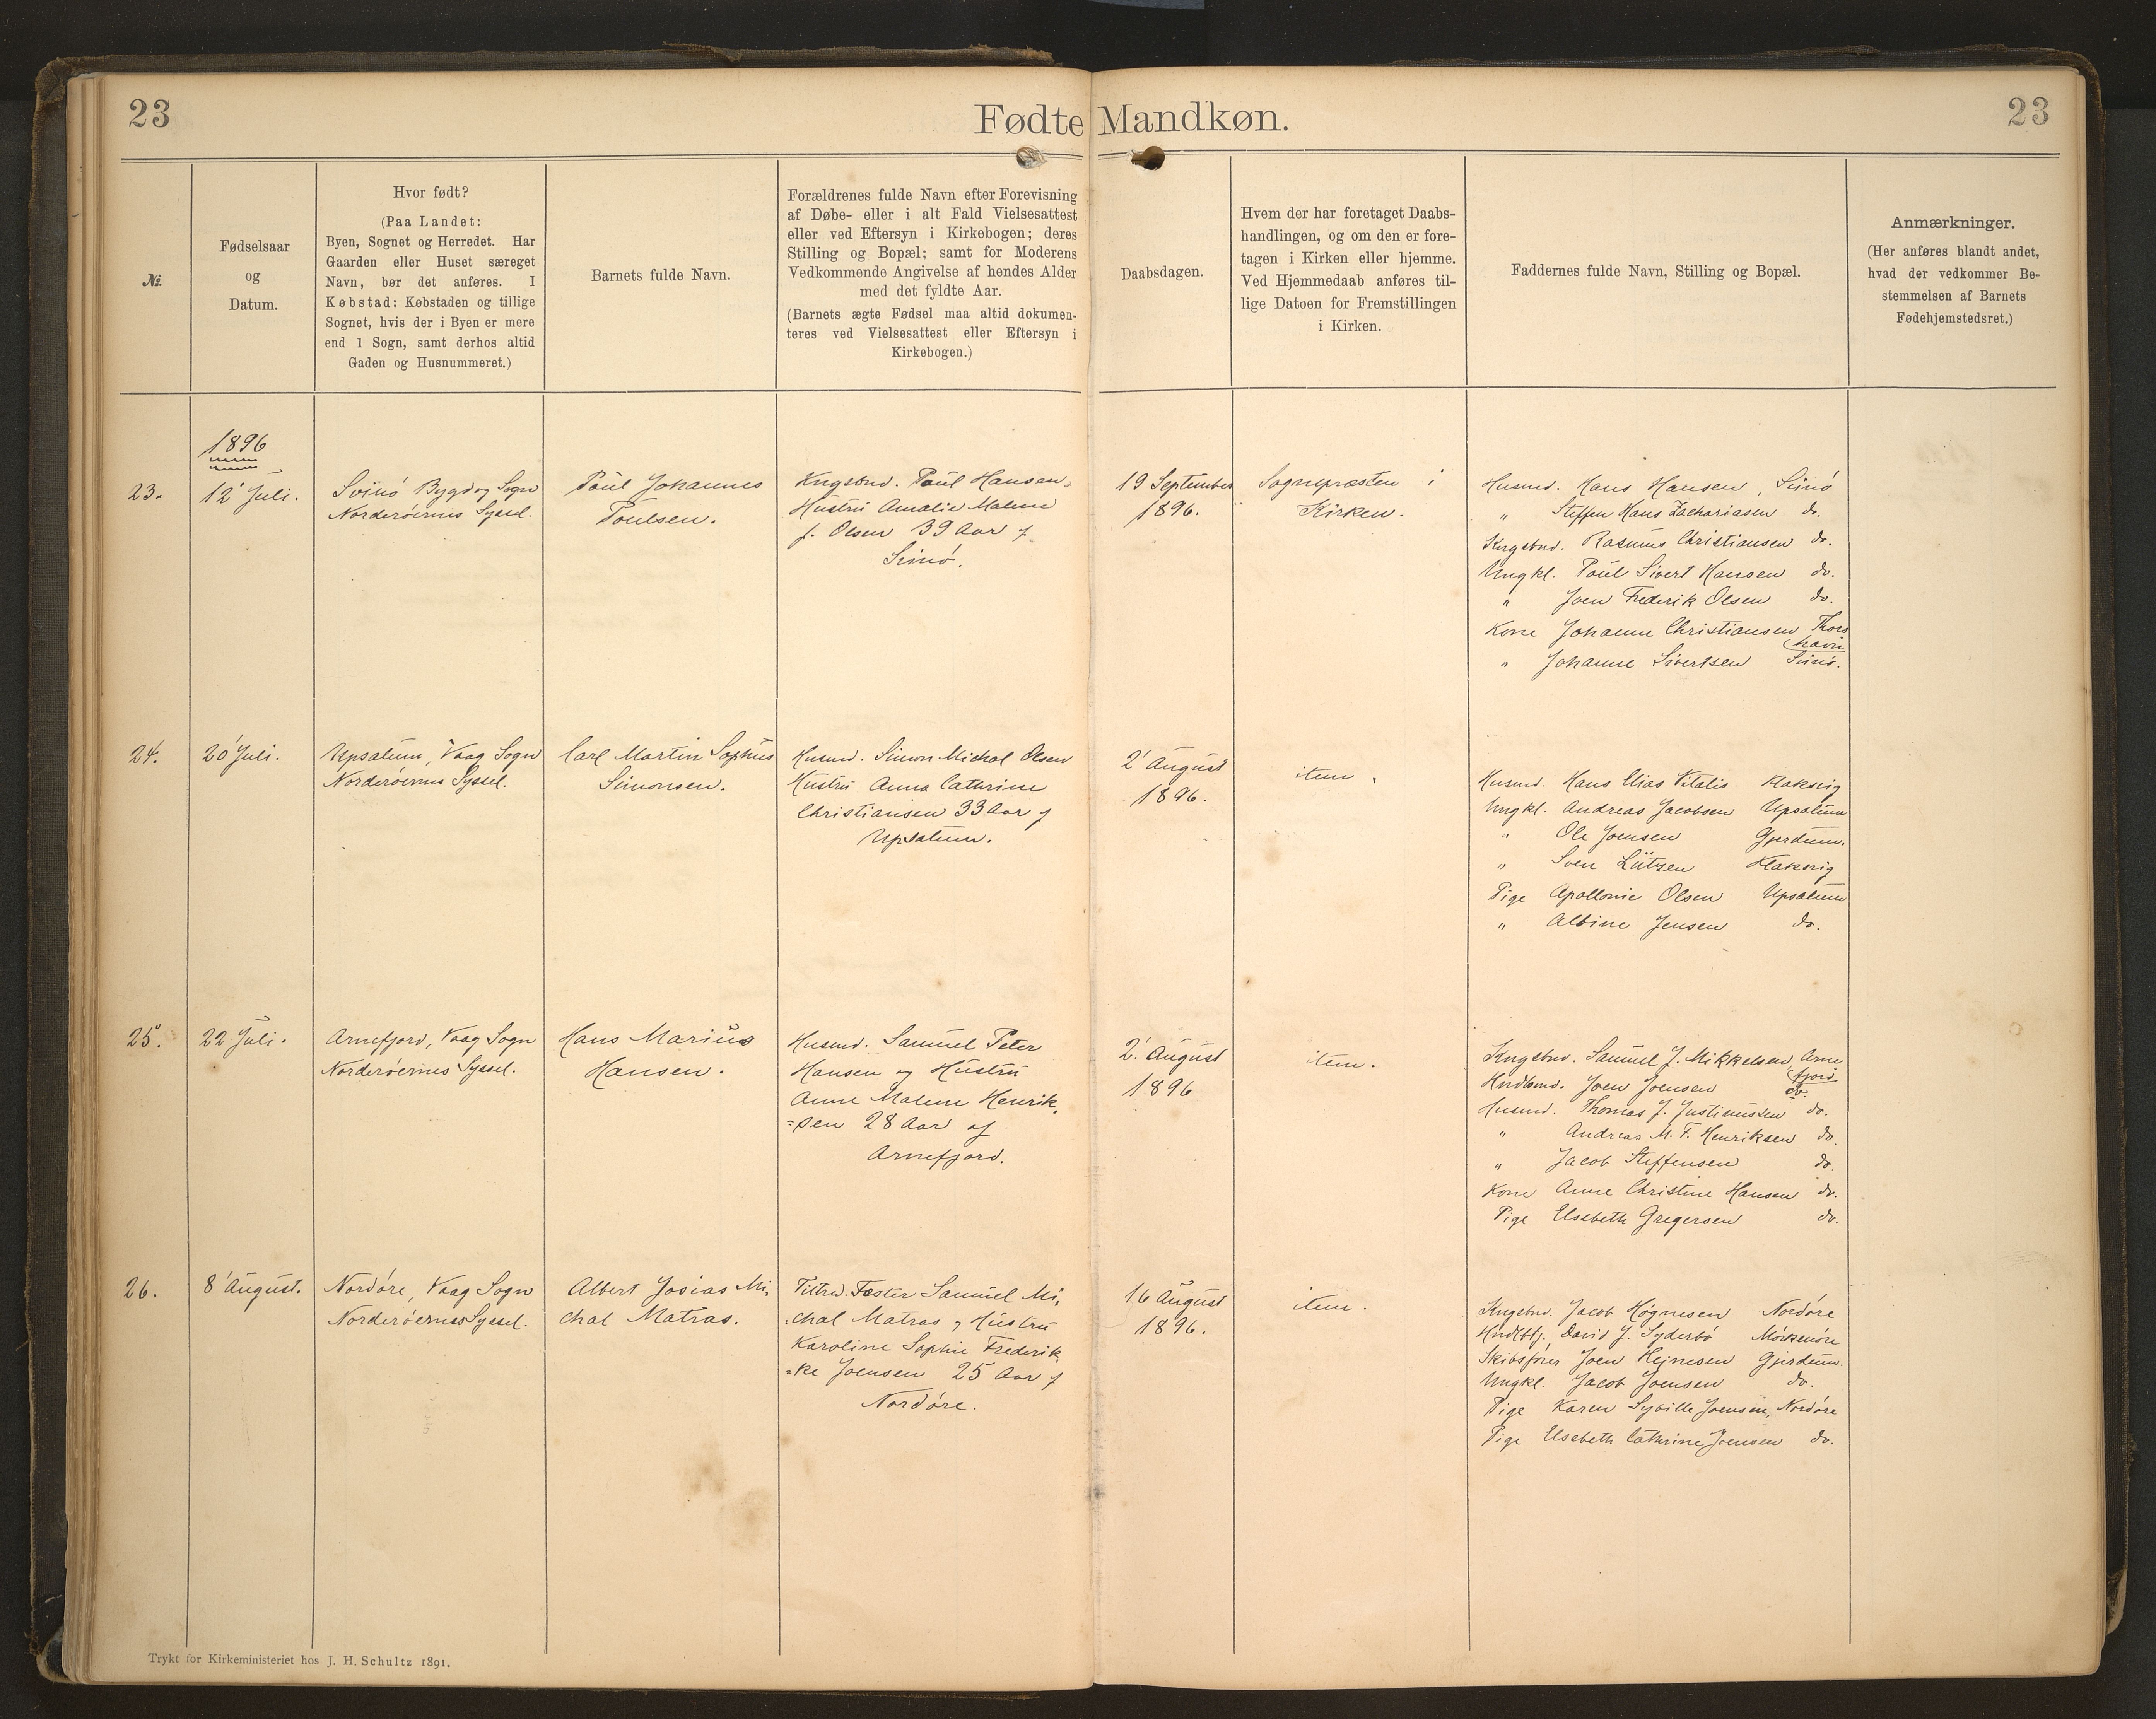 23
Fødte Mandkøn.
23
Nr.
Fødselsaar
og
Datum.
Hvor født?
(Paa Landet:
Byen, Sognet og Herredet. Har
Gaarden eller Huset særeget
Navn, bør det anføres. I
Købstad: Købstaden og tillige
Sognet, hvis der i Byen er mere
end 1 Sogn, samt derhos altid
Gaden og Husnummeret.)
Barnets fulde Navn.
Forældrenes fulde Navn efter Forevisning
af Døbe- eller i alt Fald Vielsesattest
eller ved Eftersyn i Kirkebogen; deres
Stilling og Bopæl; samt for Moderens
Vedkommende Angivelse af hendes Alder
med det fyldte Aar.
(Barnets ægte Fødsel maa altid dokumen-
teres ved Vielsesattest eller Eftersyn i
Kirkebogen.)
Daabsdagen.
Hvem der har foretaget Daabs-
handlingen, og om den er fore-
tagen i Kirken eller hjemme.
Ved Hjemmedaab anføres til-
lige Datoen for Fremstillingen
i Kirken.
Faddernes fulde Navn, Stilling og Bopæl.
Anmærkninger.
(Her anføres blandt andet,
hvad der vedkommer Be-
stemmelsen af Barnets
Fødehjemstedsret.)
1896
23.
12' Juli.
Svinö Bygd og Sogn
Norderöernes Syssel.
Poul Johannes
Poulsen.
Kngsbnd. Poul Hansen
Hustru Amalie Malene
f. Olsen 39 Aar f
Svinö.
19 September
1896.
Sognepræsten i
Kirken.
Husmd. Hans Hansen, Svinö
" Steffen Hans Zachariasen do.
Kngsbnd. Rasmus Christiansen do.
Ungkl. Poul Sivert Hansen do.
" Joen Frederik Olsen do.
Kone Johanne Christiansen Thors
havn
" Johanne Sivertsen Svinö.
24.
20' Juli.
Upsalum, Vaag Sogn
Norderöernes Syssel.
Carl Martin Sophus
Simonsen.
Husmd. Simon Michal Olsen
Hustru Anna Cathrine
Christiansen 33 Aar f
Upsalum.
2' August
1896.
item.
Husmd. Hans Elias Vitalis Klaksvig
Ungkl. Andreas Jacobsen Upsalum
" Ole Joensen Gjerdum.
" Sven Lützen Klaksvig
Pige Apollonie Olsen Upsalum
" Albine Jensen do.
25.
22 Juli.
Arnefjord, Vaag Sogn
Norderöernes Syssel.
Hans Marius
Hansen.
Husmd. Samuel Peter
Hansen og Hustru
Anne Malene Henrik-
=sen 28 Aar af
Arnefjord.
2' August
1896
item.
Kngsbnd. Samuel J. Mikkelsen, Arne
fjord
Hndlsmd. Joen Joensen do.
Husmd. Thomas J. Justinussen do.
" Andreas M. F. Henriksen do.
" Jacob Steffensen do.
Kone Anne Christine Hansen do.
Pige Elsebeth Gregersen do.
26.
8' August.
Nordöre, Vaag Sogn
Norderöernes Syssel.
Albert Josias Mi-
chal Matras.
Samuel Mi-
chal Matras og Hustru
Karoline Sophie Frederik-
=ke Joensen 25 Aar f
Nordöre.
16 August
1896.
item.
Kngsbnd. Jacob Högnesen Nordöre
Hndlbtj. David J. Syderbö Mörkenöre
Skibsfører Joen Hejnesen Gjerdum.
Ungkl. Jacob Joensen do.
Pige Karen Sybille Joensen, Nordöre
Pige Elsebeth Cathrine Joensen do.
Trykt for Kirkeministeriet hos J. H. Schultz 1891.